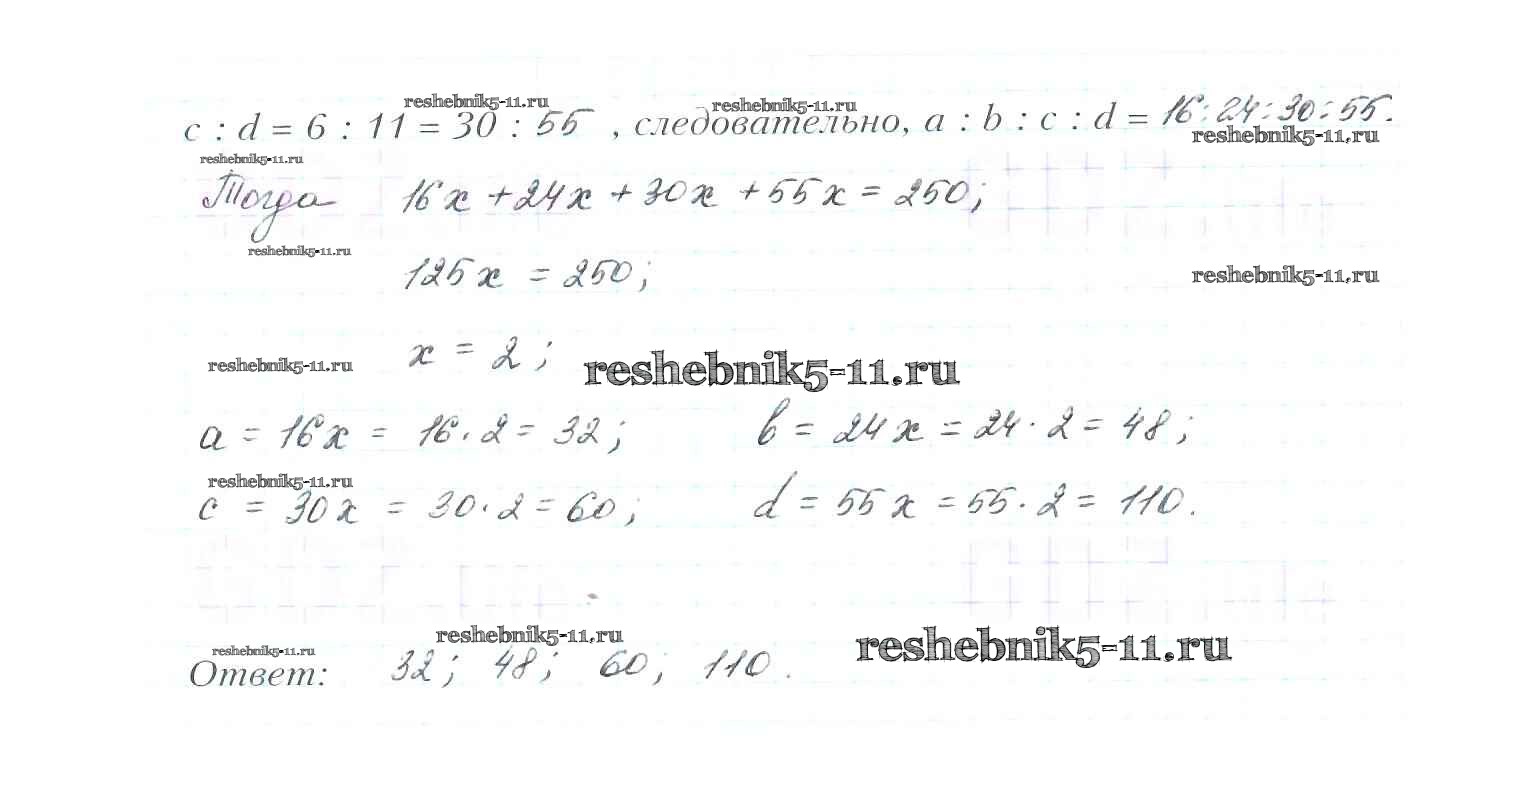 reshebnik5-11.ru reshebnik5-11.ru
c : d = 6 : 11 = 30 : 55 , следовательно, a : b : c : d = 16 : 24 : 30 : 55.
reshebnik5-11.ru reshebnik5-11.ru
Тогда 16x + 24x + 30x + 55x = 250;
reshebnik5-11.ru
125x = 250; reshebnik5-11.ru
reshebnik5-11.ru x = 2; reshebnik5-11.ru
a = 16x = 16 · 2 = 32; b = 24x = 24 · 2 = 48;
reshebnik5-11.ru
c = 30x = 30 · 2 = 60; d = 55x = 55 · 2 = 110.
reshebnik5-11.ru reshebnik5-11.ru
reshebnik5-11.ru
Ответ: 32; 48; 60; 110.